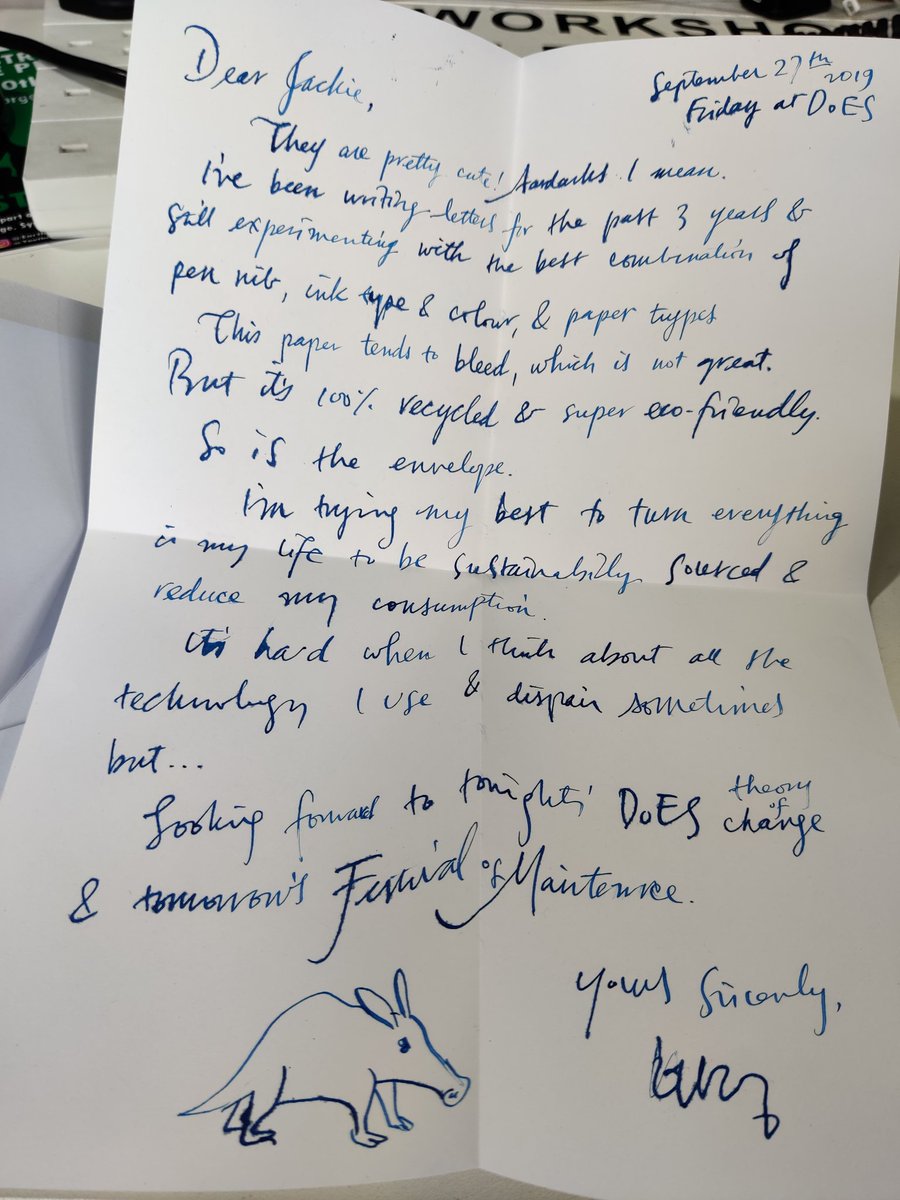 WORKSHO
Dear Jackie,
September 27th 2019
Friday at DoES
They are pretty cute! Aardarks I mean.
I've been writing letters for the past 3 years &
still experimenting with the best combination of
pen nib, ink type & colour, & paper types
This paper tends to bleed, which is not great.
But it's 100% recycled & super eco-friendly.
So is the envelope.
I'm trying my best to turn everything
in my life to be sustainably sourced &
reduce my consumption.
It's hard when I think about all the
technology I use & dispair sometimes
but...
Looking forward to tonight's DoES theory of change
& tomorrow's Festival of Maintenance.
Yours Sincerly,